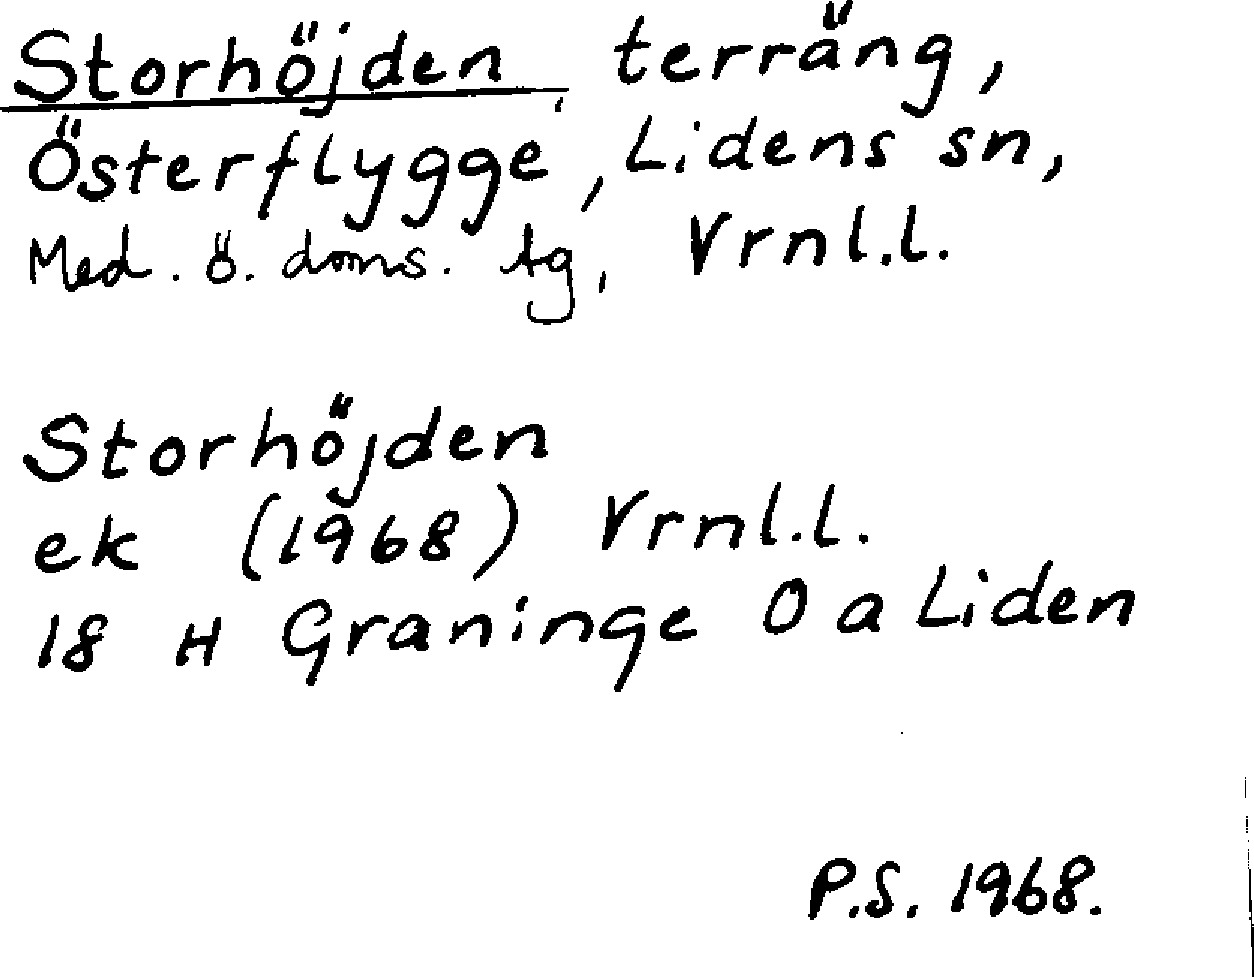 Storhöjden, terräng,
Österflygge, Lidens sn,
Med. ö. doms. tg, Vrnl.l.
Storhöjden
ek (1968) Vrnl.l.
18 H Graninge O a Liden
P.S. 1968.